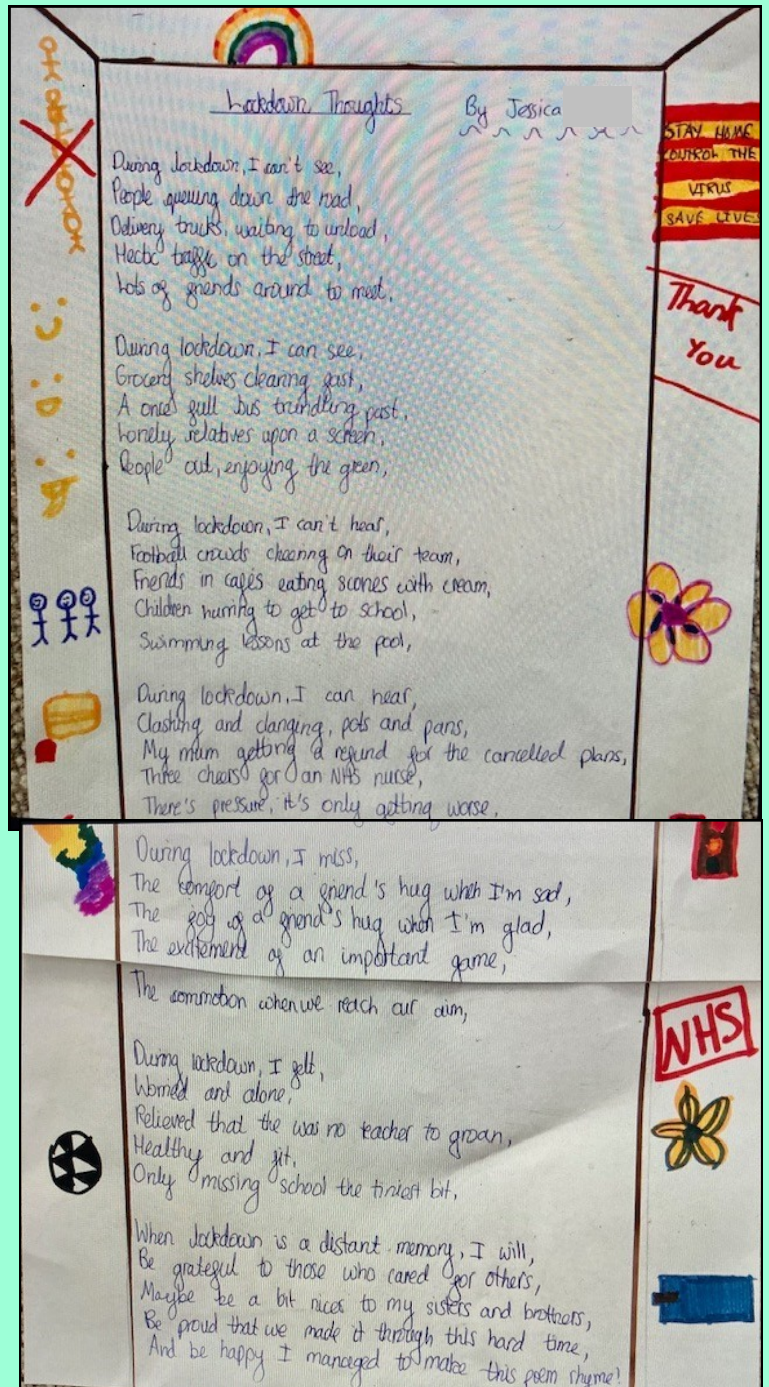 Lockdown Thoughts By Jessica
During lockdown, I can't see,
People queuing down the road,
Delivery trucks, waiting to unload,
Hectic traffic on the street,
Lots of friends around to meet.
During lockdown, I can see,
Grocery shelves clearing fast,
A once full bus trundling past,
Lonely relatives upon a screen,
People out, enjoying the green,
During lockdown, I can't hear,
Football crowds cheering on their team,
Friends in cafés eating scones with cream,
Children hurring to get to school,
Swimming lessons at the pool,
During lockdown, I can hear,
Clashing and clanging, pots and pans,
My mum getting a refund for the cancelled plans,
Three cheers for an NHS nurse,
There's pressure, it's only getting worse,
During lockdown, I miss,
The comfort of a friend's hug when I'm sad,
The joy of a friend's hug when I'm glad,
The excitement of an important game,
The commotion when we reach our aim,
During lockdown, I felt,
Worried and alone,
Relieved that the was no teacher to groan,
Healthy and fit,
Only missing school the tiniest bit,
When lockdown is a distant memory, I will,
Be grateful to those who cared for others,
Maybe be a bit nicer to my sisters and brothers,
Be proud that we made it through this hard time,
And be happy I managed to make this poem rhyme!
STAY HOME
CONTROL THE
VIRUS
SAVE LIVES
Thank
You
NHS